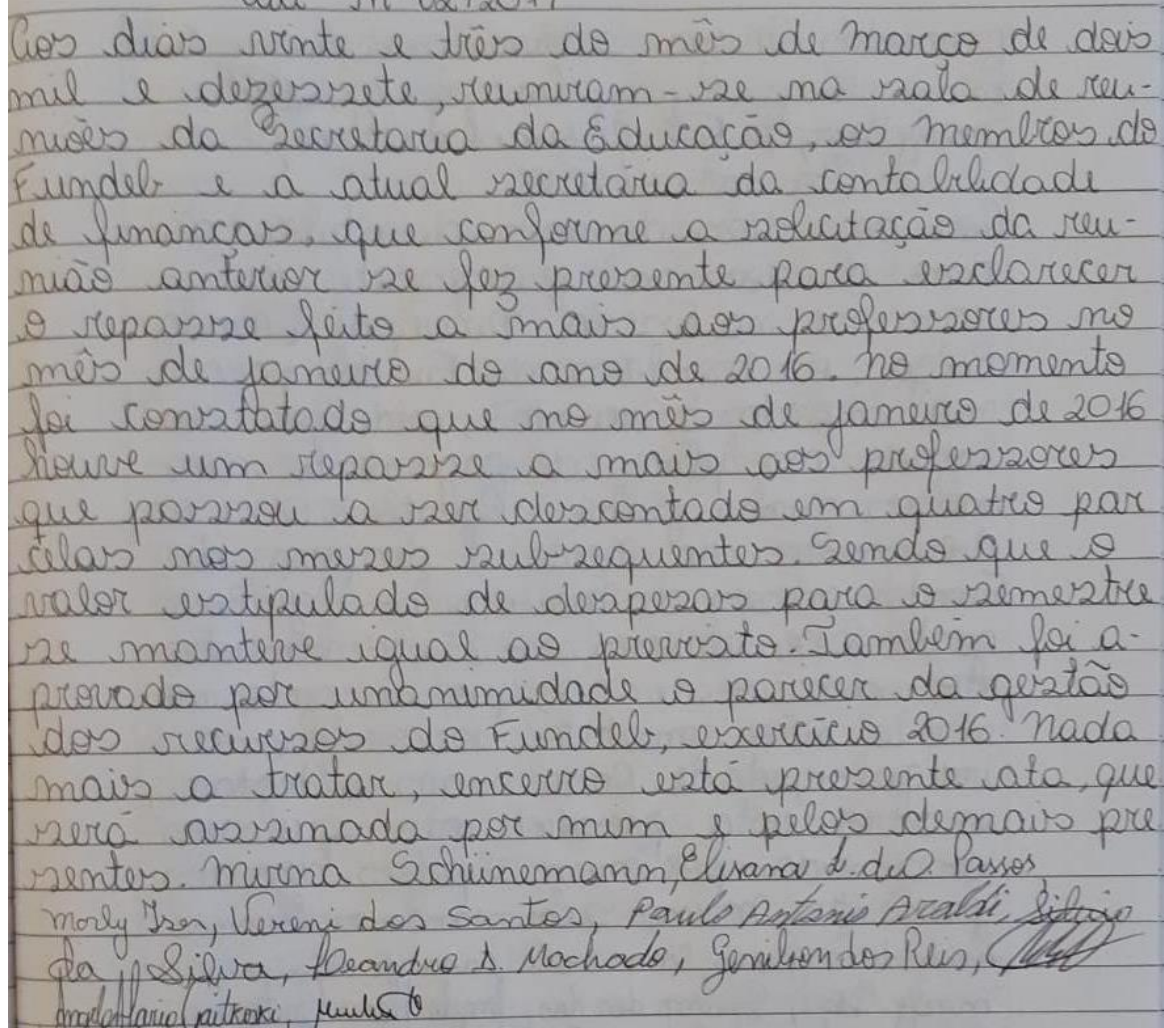 Ata nº 02/2017
Aos dias vinte e três do mês de março de dois
mil e dezessete, reuniram-se na sala de reu-
niões da Secretaria da Educação, os membros do
Fundeb e a atual secretária da contabilidade
de finanças, que conforme a solicitação da reu-
nião anterior se fez presente para esclarecer
o repasse feito a mais aos professores no
mês de janeiro do ano de 2016. No momento
foi constatado que no mês de janeiro de 2016
houve um repasse a mais aos professores
que passou a ser descontado em quatro par
celas nos meses subsequentes. Sendo que o
valor estipulado de despesas para o semestre
se manteve igual ao previsto. Também foi a-
provado por unânimidade o parecer da gestão
dos recursos do Fundeb, exercício 2016. Nada
mais a tratar, encerro está presente ata, que
será assinada por mim e pelos demais pre
sentes. Mirna Schünemann, Elisana d. de O. Passos,
Vereni dos Santos, Paulo Antonio Araldi,
da Silva, Leandro S. Machado, Genilson dos Reis,